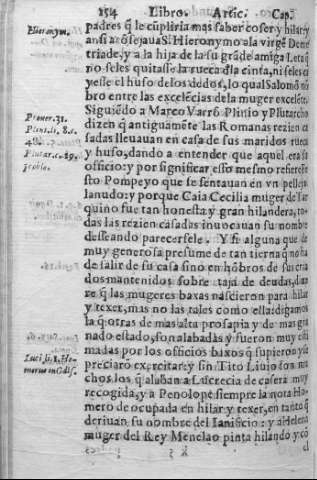 254 Libro. Artic. Cap.
Hieronym.
padres q̃ le cũpliria mas saber coser y hilar: y
ansi acõsejaua S. Hieronymo a la virgẽ Deme
triade, y a la hija de la su grãde amiga Leta q̃
no se les quitasse la rueca d'la cinta, ni se les ca
yesse el huso de los dedos, lo qual Salomõ nõ
bro entre las excelẽcias de la muger excelẽte.
Prouer. 31.
Plini. li. 8. c.
48.
Plutar. c. 29.
Siguiẽdo a Marco Varrõ Plinio y Plutarcho
dizen q̃ antiguamẽte las Romanas rezien ca
sadas lleuauan en casa de sus maridos rueca
y huso, dando a entender que aquel era su
officio: y por significar esso mesmo refiere Fe
sto Pompeyo que se sentauan en vn pellejo
lanudo: y porque Caia Cecilia muger de Tar
quino fue tan honesta y gran hilandera, to-
das las rezien casadas inuocauan su nombre
desseando parecersele. Y si alguna que de
muy generosa presume de tan tierna q̃ no ha
de salir de su casa sino en hõbros de sus cria
dos mantenidos sobre taja de deudas, dixe
re q̃ las mugeres baxas nascieron para hilar
y texer, mas no las tales como ella: digamos
la q̃ otras de mas alta prosapia y de mas gra
nado estado, son alabadas y fueron muy esti
madas por los officios baxos q̃ supieron y se
Luci. li. 1. Ho-
merus in Odis.
preciarõ exercitar: y sin Tito Liuio son mu
chos los q̃ alaban a Lucrecia de casera muy
recogida, y a Penolope siempre la nota Ho-
mero de ocupada en hilar y texer, en tanto q̃
deriuan su nombre del lanificio: y a Helena
muger del Rey Menelao pinta hilando y cõ
el